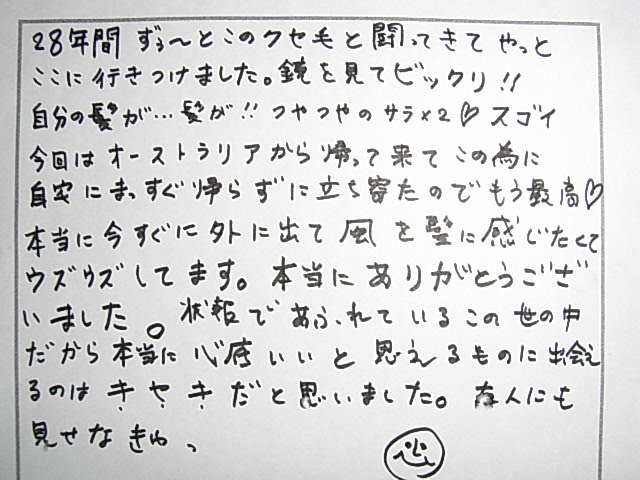 28年間 ずぅ〜とこのクセ毛と闘ってきて やっと
ここに行きつけました。鏡を見てビックリ!!
自分の髪が…髪が!! つやつやのサラ×2♡ スゴイ
今回は オーストラリアから帰って来て この為に
自宅にまっすぐ帰らずに立ち寄たのでもう最高♡
本当に今すぐに外に出て 風を髪に感じたくて
ウズウズしてます。本当にありがとうござ
いました。状報であふれているこの世の中
だから本当に心底いいと思えるものに出会え
るのはキセキだと思いました。友人にも
見せなきゃっ